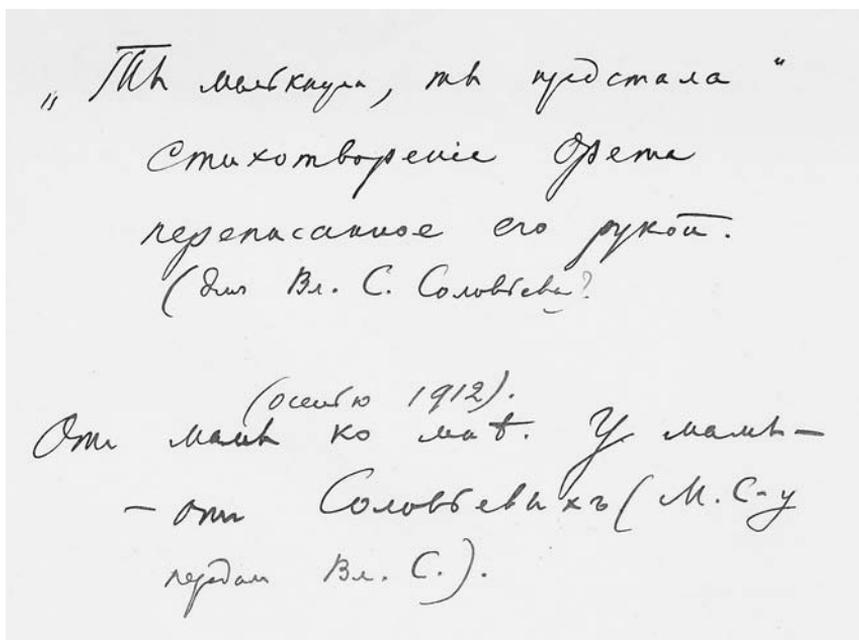 „Ты мелькнула, ты предстала“
Стихотвореніе Фета
переписанное его рукой.
(для Вл. С. Соловьева?
(осенью 1912).
От мамы ко мнѣ. У мамы—
— от Соловьевыхъ (М. С-у
передал Вл. С.).